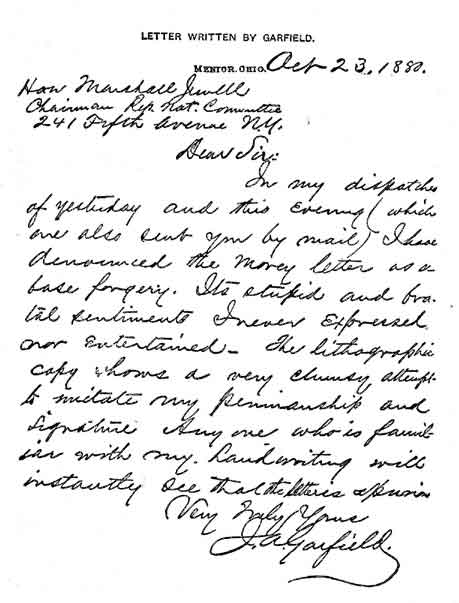 LETTER WRITTEN BY GARFIELD.
MENTOR, OHIO. Oct 23, 1880.
Hon Marshall Jewell
Chairman Rep. Nat. Committee
241 Fifth Avenue N.Y.
Dear Sir:
In my dispatches
of yesterday and this evening (which
are also sent you by mail) I have
denounced the Morey letter as a
base forgery. Its stupid and bru-
tal sentiments I never expressed
nor entertained — The lithographic
copy shows a very clumsy attempt
to imitate my penmanship and
signature Any one who is famil-
iar with my handwriting will
instantly see that the letter is spurious
Very Truly Yours
J. A. Garfield.